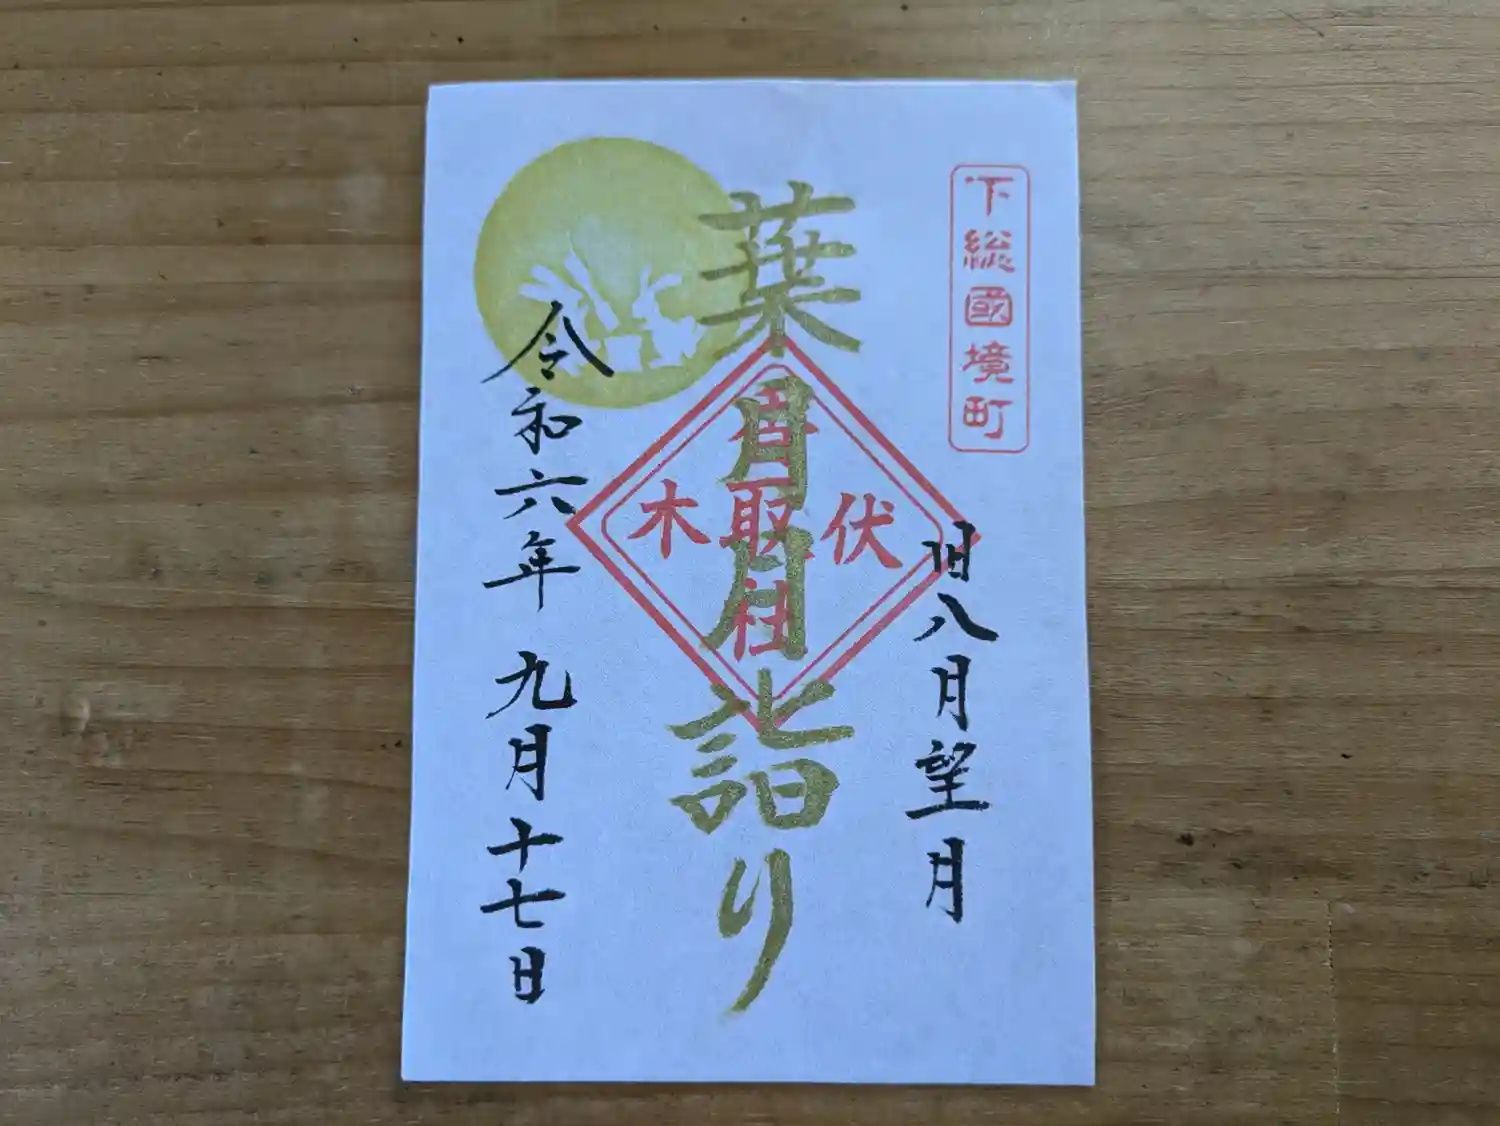 下総國境町
旧八月望月
葉月月詣り
伏木
香取社
令和六年九月十七日